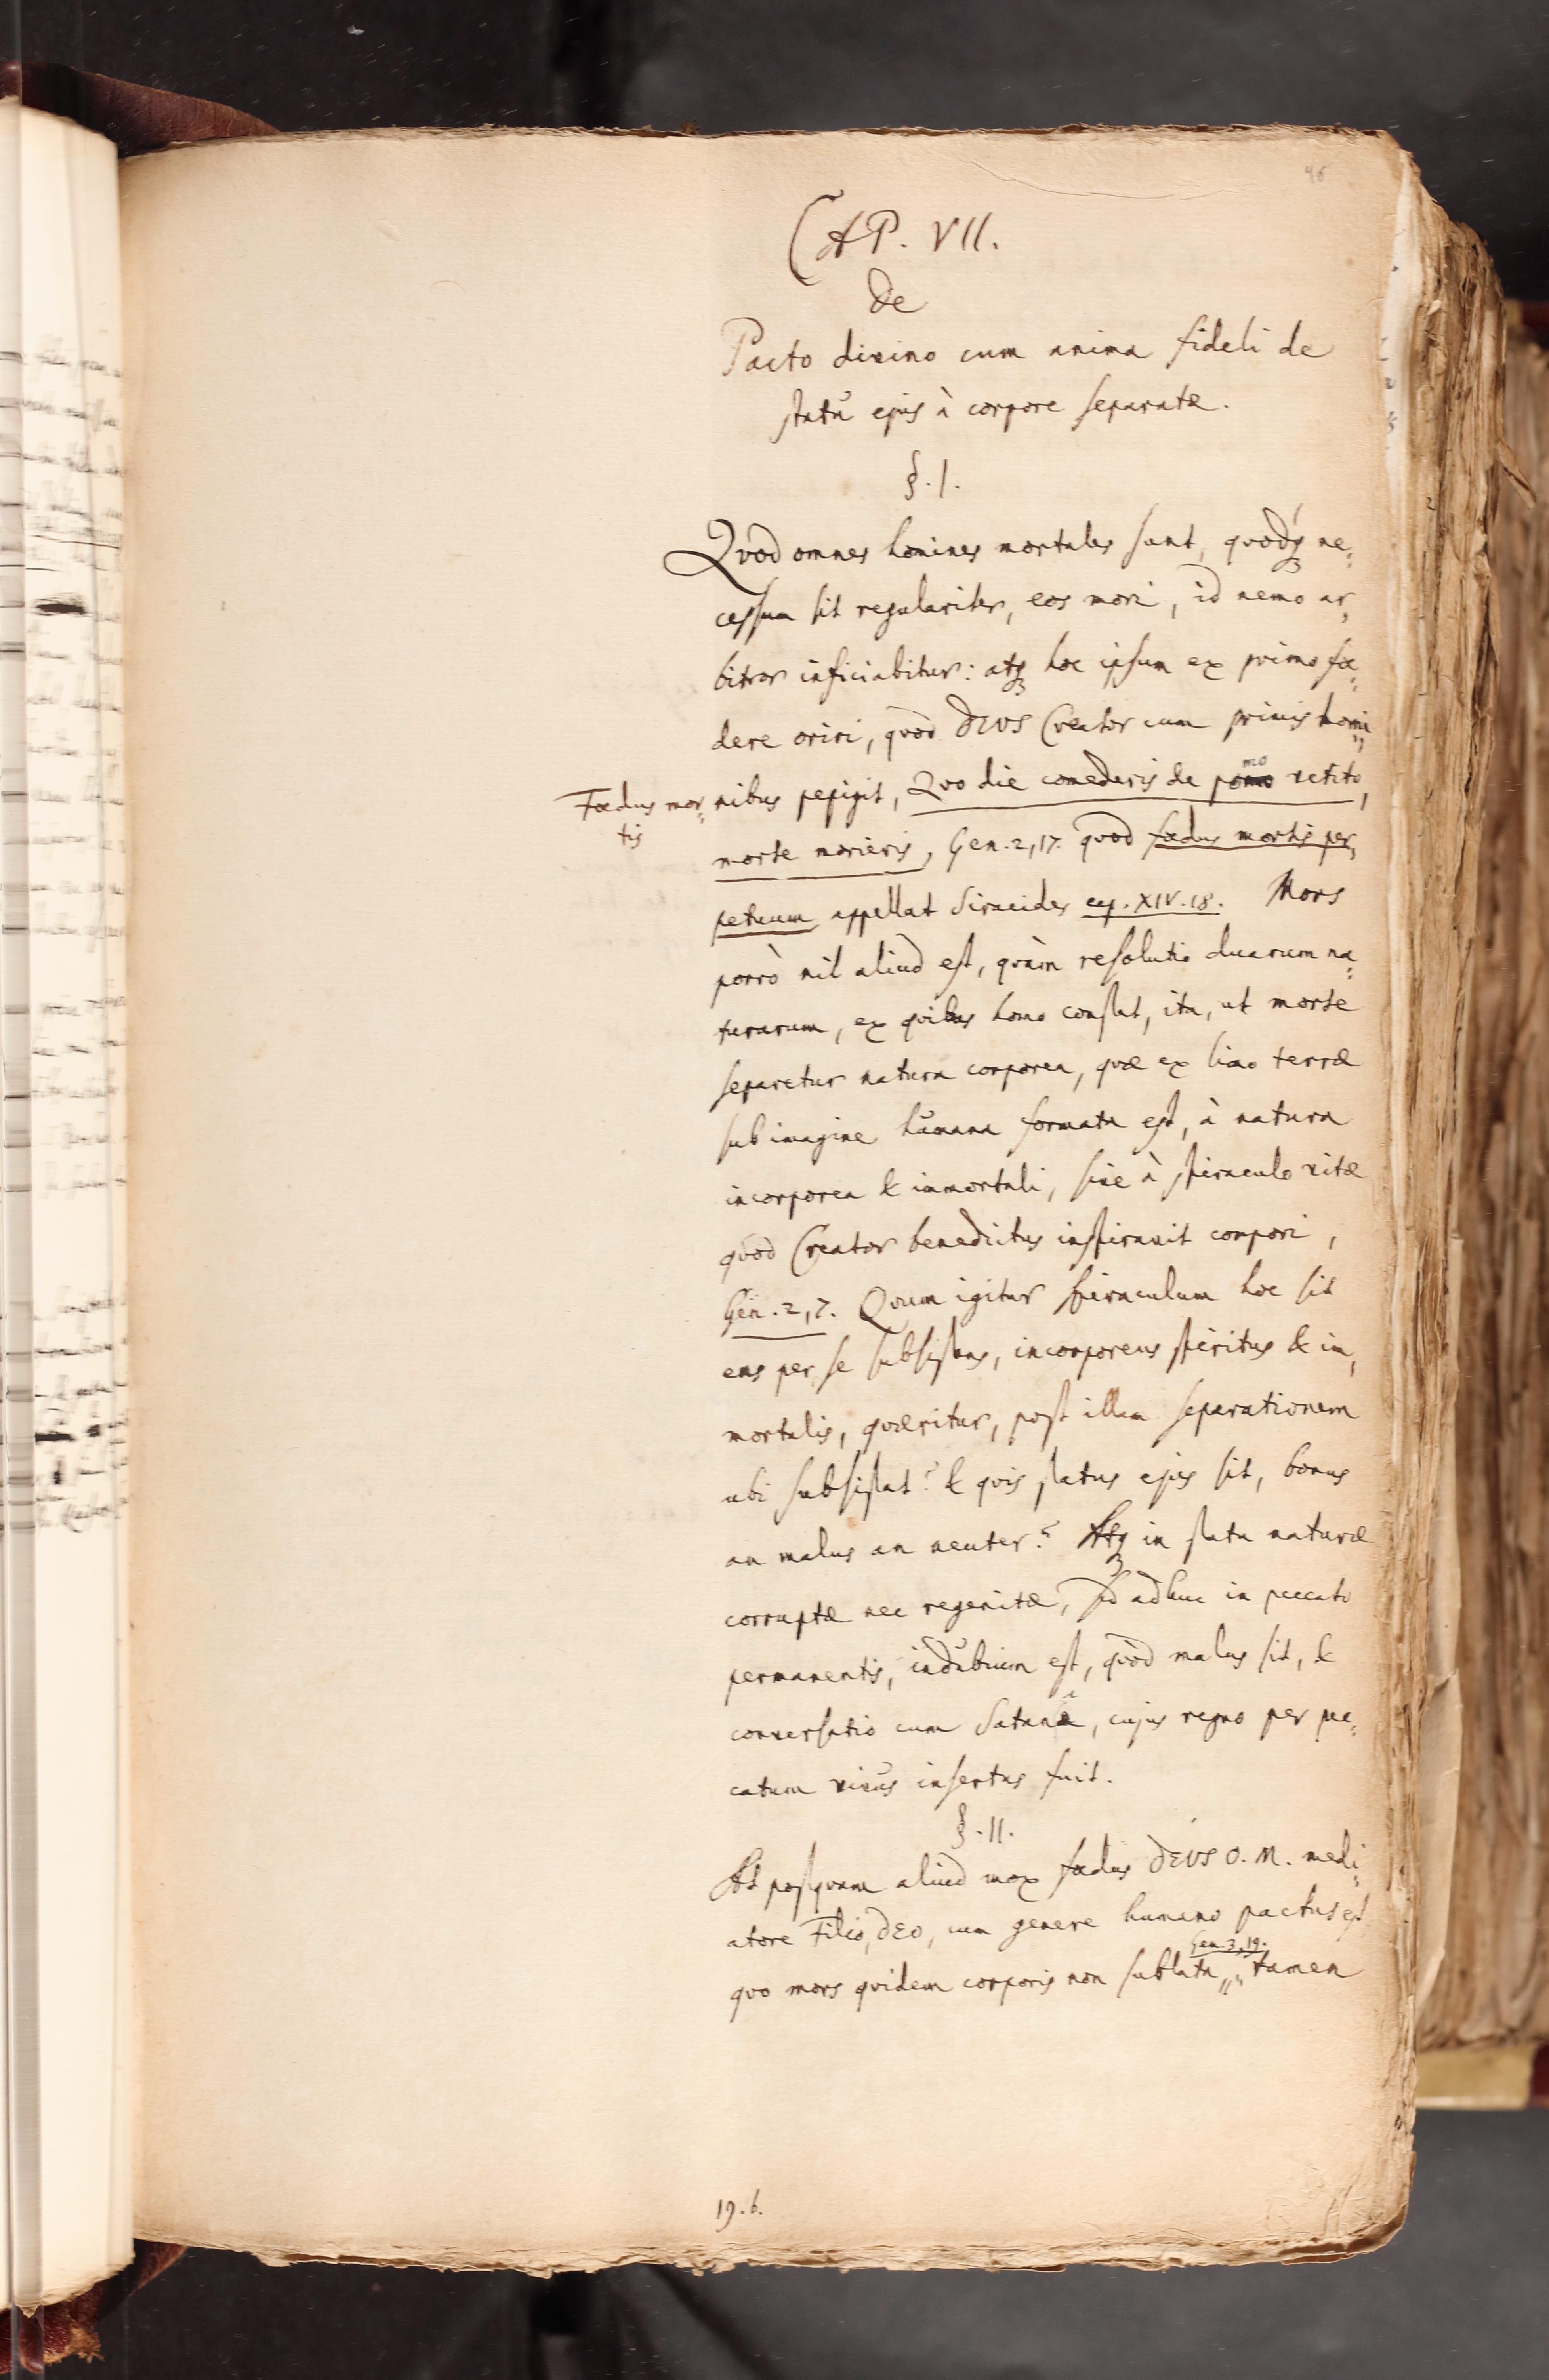 96
CAP. VII.
de
Pacto divino cum anima fideli de
statu ejus à corpore separatæ.
§. I.
Qvod omnes homines mortales sunt, qvodq; ne-
cessum sit regulariter, eos mori, id nemo ar-
bitror inficiabitur: atq; hoc ipsum ex primo fœ-
dere oriri, qvod DEUS Creator cum primis homi-
Fœdus mor-
tis
nibus pepigit, Qvo die comederis de pomo vetito,
morte morieris, Gen. 2, 17. qvod fœdus mortis per-
petuum appellat Siracides cap. XIV. 18. Mors
porrò nil aliud est, qvàm resolutio duarum na-
turarum, ex qvibus homo constat, ita, ut morte
separetur natura corporea, qvæ ex limo terræ
sub imagine humana formata est, à natura
incorporea & immortali, sive à spiraculo vitæ
qvod Creator benedictus inspiravit corpori,
Gen. 2, 7. Qvum igitur spiraculum hoc sit
ens per se subsistens, incorporeus spiritus & im-
mortalis, qværitur, post illam separationem
ubi subsistat? & qvis status ejus sit, bonus
an malus an neuter? Atq; in statu naturæ
corruptæ nec regenitæ, sed adhuc in peccato
permanentis, indubium est, qvòd malus sit, &
conversatio cum Satanâ, cujus regno per pec-
catum vivus insertus fuit.
§. II.
At postqvam aliud mox fœdus DEUS O. M. medi-
atore Filio, DEO, cum genere humano pactus est
Gen. 3, 19.
qvo mors qvidem corporis non sublata, tamen
19. b.